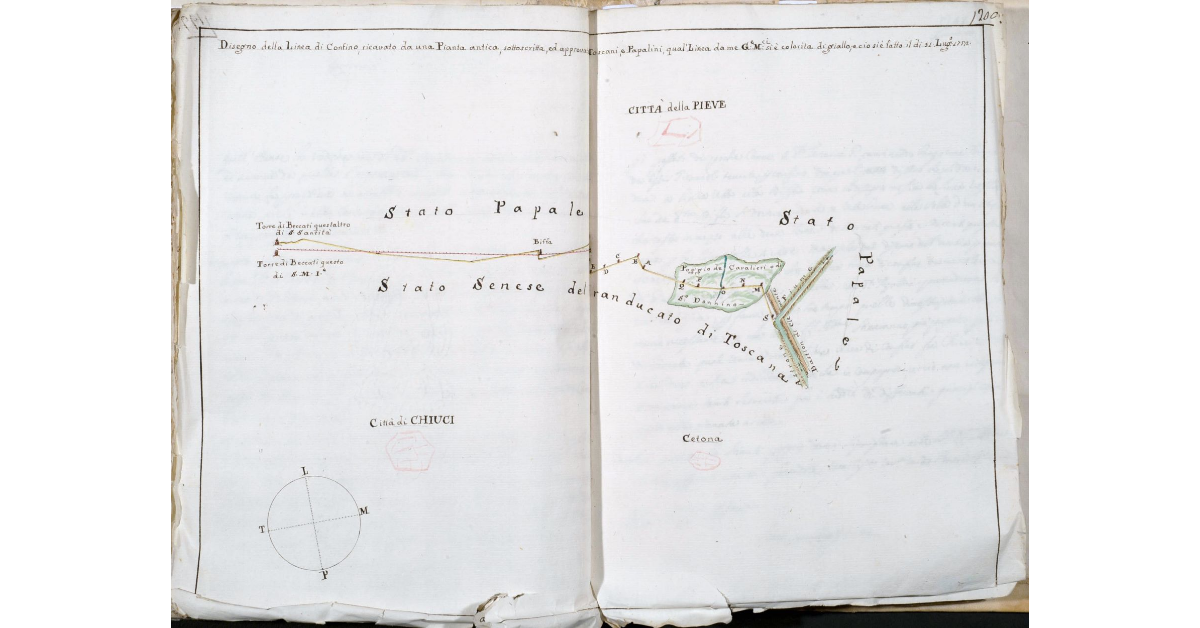 1200.
Disegno della Linea di Confino, ricavato da una Pianta antica, sottoscritta, ed approva Toscani, e Papalini, qual'Linea da me si è colorita di giallo, e ciò si è fatto il di 21. Lug.
CITTÀ della PIEVE
Stato Papale
Stato
Papale
Torre di Beccati quest'altro
di S. Santità
Biffa
Torre di Beccati questo
di S. M. I.
Stato Senese del Granducato di Toscana
E D C B A
Poggio de Cavalieri
O M
S. Donnino
Città di CHIUCI
Cetona
L
M
T
P